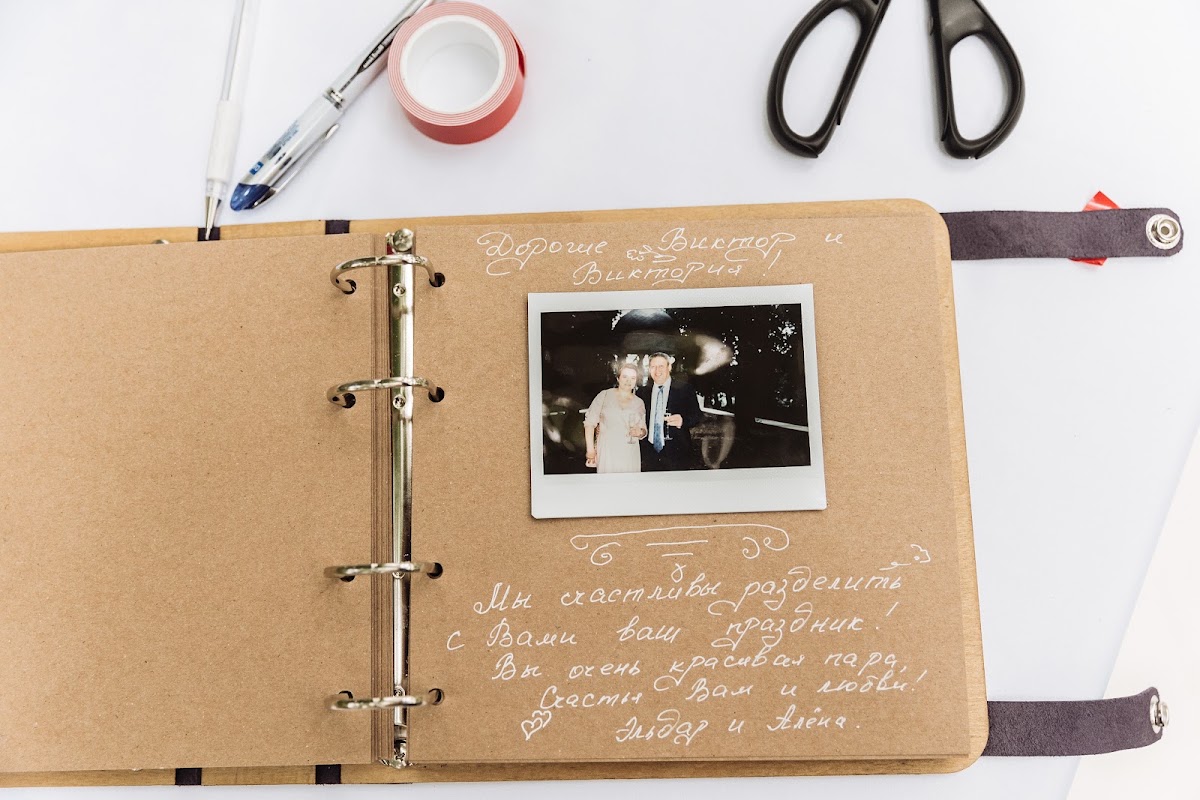 Дорогие Виктор и
Виктория!
Мы счастливы разделить
с Вами ваш праздник!
Вы очень красивая пара,
Счастья Вам и любви!
Эльдар и Алёна.